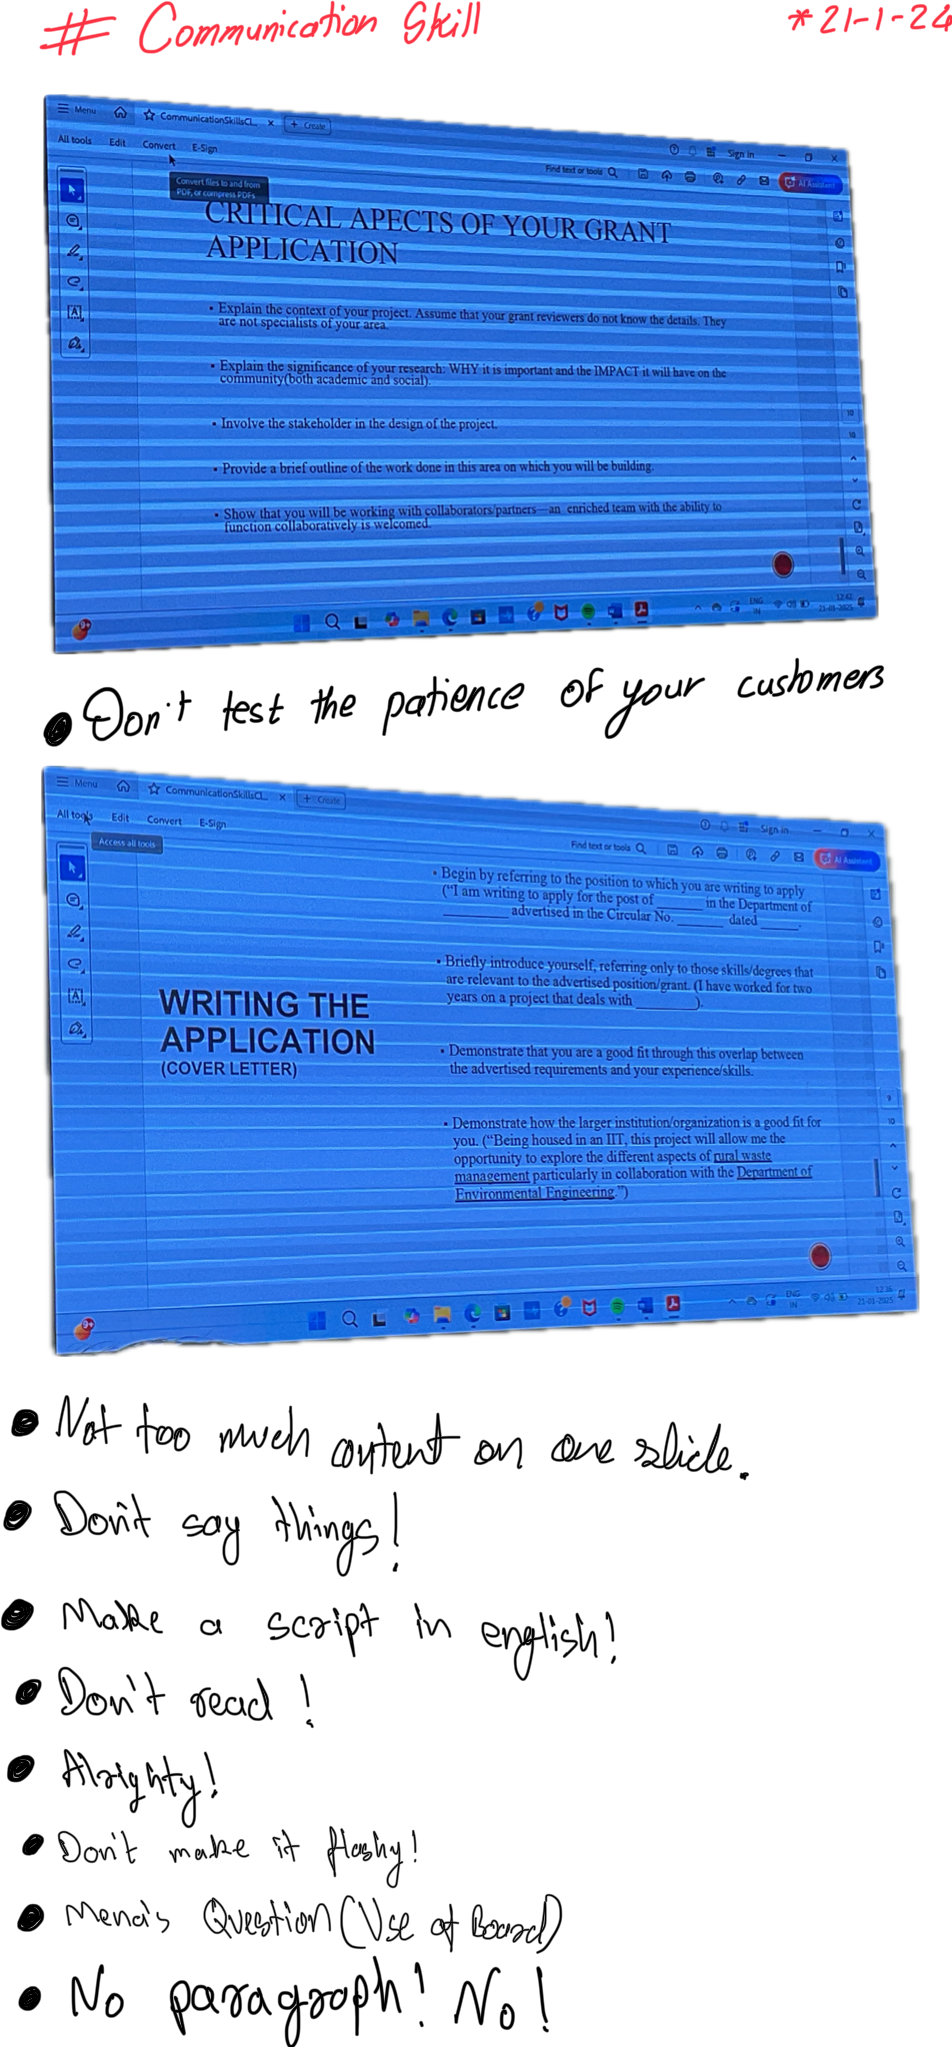 # Communication Skill *21-1-24
Menu CommunicationSkillsCL.. × + Create
Sign in
All tools Edit Convert E-Sign
Find text or tools
AI Assistant
Convert files to and from
PDF, or compress PDFs
CRITICAL APECTS OF YOUR GRANT
APPLICATION
• Explain the context of your project. Assume that your grant reviewers do not know the details. They
are not specialists of your area.
• Explain the significance of your research: WHY it is important and the IMPACT it will have on the
community(both academic and social).
• Involve the stakeholder in the design of the project.
• Provide a brief outline of the work done in this area on which you will be building.
• Show that you will be working with collaborators/partners—an enriched team with the ability to
function collaboratively is welcomed.
10
10
ENG
IN
12:42
21-01-2025
9+
• Don't test the patience of your customers
Menu CommunicationSkillsCL.. × + Create
Sign in
All tools Edit Convert E-Sign
Find text or tools
AI Assistant
Access all tools
• Begin by referring to the position to which you are writing to apply
("I am writing to apply for the post of ______ in the Department of
________ advertised in the Circular No. ______ dated _____.
• Briefly introduce yourself, referring only to those skills/degrees that
are relevant to the advertised position/grant. (I have worked for two
years on a project that deals with ________).
WRITING THE
APPLICATION
(COVER LETTER)
• Demonstrate that you are a good fit through this overlap between
the advertised requirements and your experience/skills.
• Demonstrate how the larger institution/organization is a good fit for
you. ("Being housed in an IIT, this project will allow me the
opportunity to explore the different aspects of rural waste
management particularly in collaboration with the Department of
Environmental Engineering.")
9
10
ENG
IN
12:36
21-01-2025
9+
• Not too much content on one slide.
• Don't say things!
• Make a script in english!
• Don't read !
• Alrighty!
• Don't make it flashy!
• Mena's Question (Use of Board)
• No paragraph! No!